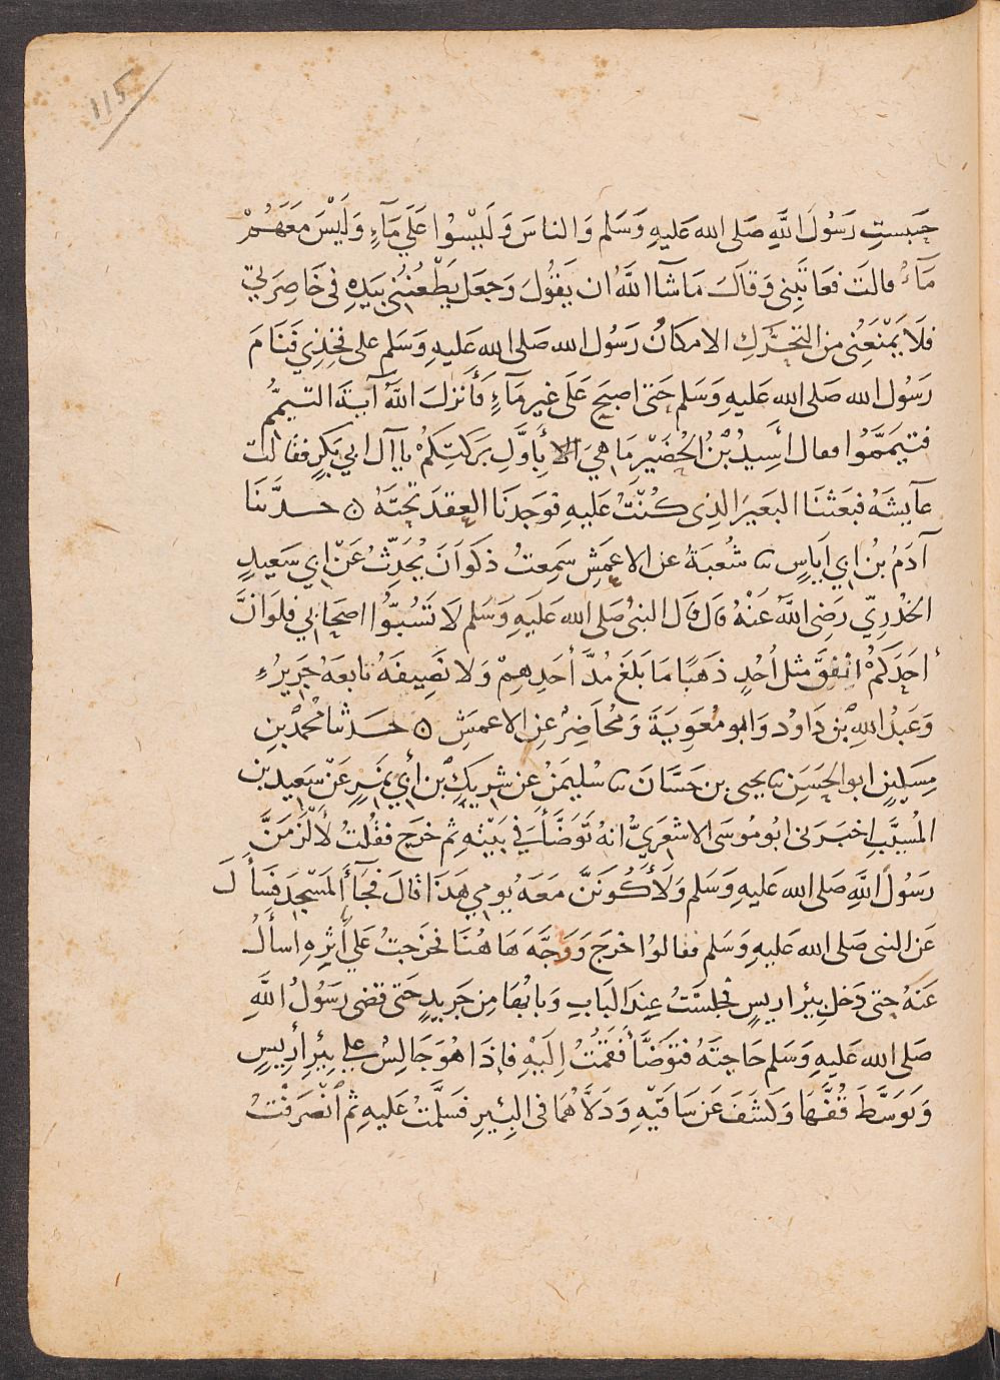 115
حَبَستِ رَسُولَ اللَّهِ صَلى الله عَليهِ وَسَلم وَالناسَ وَلَيْسُوا عَلَي مَآءٍ وَلَيْسَ مَعَهُمْ
مَآءٌ قالتَ فعَاتَبَنِى وَقالَ مَا شآ اللَّهُ ان يَقولَ وَجعَل يَطْعُنُنِى بيَدِهِ فى خَاصِرَتِي
فلَا يَمْنَعُنِى من التحَرُّكِ الا مكانُ رَسُول الله صَلى الله عَليهِ وَسَلم على فخِذِي فَنَامَ
رَسُول الله صَلى الله عَليهِ وَسَلم حَتى اصبَحَ عَلَى غيرِ مَآءٍ فَأنزلَ اللَّهُ آيَةَ التيمُّمِ
فتيَمَّمُوا فقال اُسَيدُ بْنُ الحُضَيْرِ مَا هِيَ بِأوَّلِ بَرَكتِكُمْ يا آل ابي بَكرٍ فقَالت
عآيشَةُ فبَعَثنَا البَعيرَ الذِى كُنْتُ عَليهِ فوَجَدنَا العِقدَ تحتَهُ ۞ حدَّثنَا
آدَمُ بْنُ ابي اِيَاسٍ نا شُعبَةُ عن الاعمَشِ سَمِعتُ ذكوَانَ يُحَدِّثُ عَنْ ابي سَعيدٍ
الخُدْرِيّ رَضِى اللَّهُ عَنْهُ قال قال النبىُّ صَلى الله عَليهِ وَسَلم لَا تَسُبُّوا اصحَابي فلَوَ انَّ
أحَدَكمْ انْفقَ مثل أُحُدٍ ذهَبًا مَا بَلَغ مُدَّ أحَدِهِمْ وَلا نَصِيفَهُ تابعَهُ جَرِيرٌ
وَعَبدُ اللهِ بْن دَاوُد وَابو مُعَوِيَةَ وَمُحَاضِرٌ عن الاعمَشِ ۞ حَدثنا مُحمدُ بْن
مِسْكينٍ ابو الحَسَن نا يحيى بن حَسَّانَ نا سُليمَنُ عن شَرِيكِ بْن أبي نَمِرٍ عَنْ سَعِيد بن
المُسيَّبِ اخبَرَنى ابُو مُوسَى الاشعَرِيُّ انهُ تَوَضَّأَ في بَيْتِهِ ثم خَرَج فقُلتُ لَألْزَمَنَّ
رَسُولَ اللَّهِ صَلى الله عَليهِ وَسَلم وَلَأكُونَنَّ مَعَهُ يومِي هَذا قالَ فجَآءَ المسْجدَ فسَألَ
عَن النبى صَلى الله عَليهِ وَسَلم فقالوُا خَرَجَ وَوَجَّهَ هَاهُنَا فخَرَجتُ عَلي أثرِهِ اسألُ
عَنهُ حتى دَخل بِئر اريسٍ فجَلسْتُ عِندَ البَابِ وَبَابُهَا مِن جَرِيدٍ حَتى قضى رَسُولُ اللَّهِ
صَلى الله عَليهِ وَسَلم حَاجتَهُ فتَوَضَّأ فَقمْتُ اِلَيْهِ فإِذَا هُوَ جَالِسٌ علي بِئرِ أرِيسٍ
وَتَوَسَّطَ قُفَّهَا وَكَشَفَ عَن سَاقيْهِ وَدَلاَّهُمَا فى البِئيرِ فسَلَّمْتُ عَليهِ ثم انْصَرَفْتُ